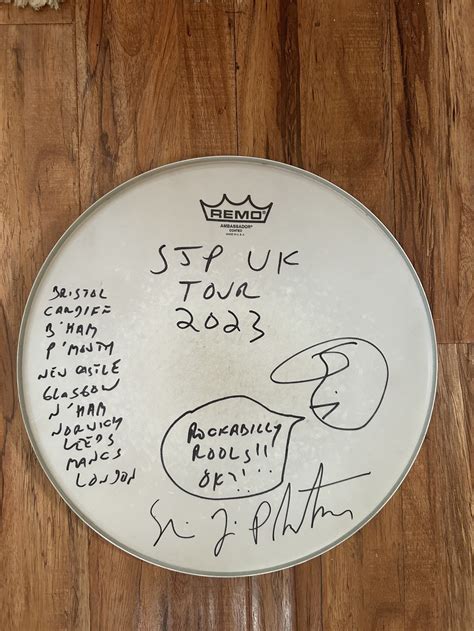 REMO
AMBASSADOR
COATED
MADE IN U.S.A.
SJP UK
TOUR
2023
BRISTOL
CARDIFF
B'HAM
P'MOUTH
NEWCASTLE
GLASGOW
N'HAM
NORWICH
LEEDS
MANCS
LONDON
ROCKABILLY
ROOLS!!
OK?!